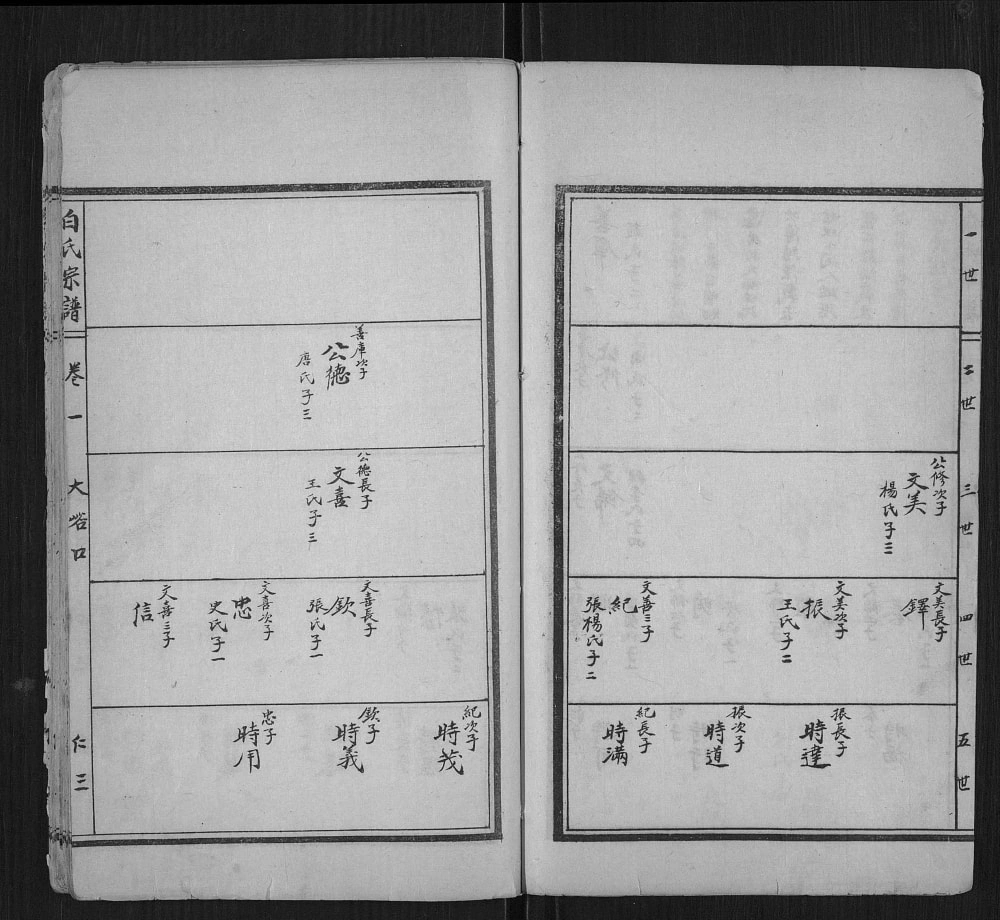 一世
二世
三世
四世
五世
公修次子
文美
楊氏子三
文美長子
鐸
文美次子
振
王氏子二
文善三子
紀
張楊氏子二
振長子
時達
振次子
時道
紀長子
時滿
善庫次子
公德
唐氏子三
公德長子
文喜
王氏子三
文喜長子
欽
張氏子一
文喜次子
忠
史氏子一
文喜三子
信
紀次子
時茂
欽子
時義
忠子
時用
白氏宗譜
卷一
大峪口
仁三